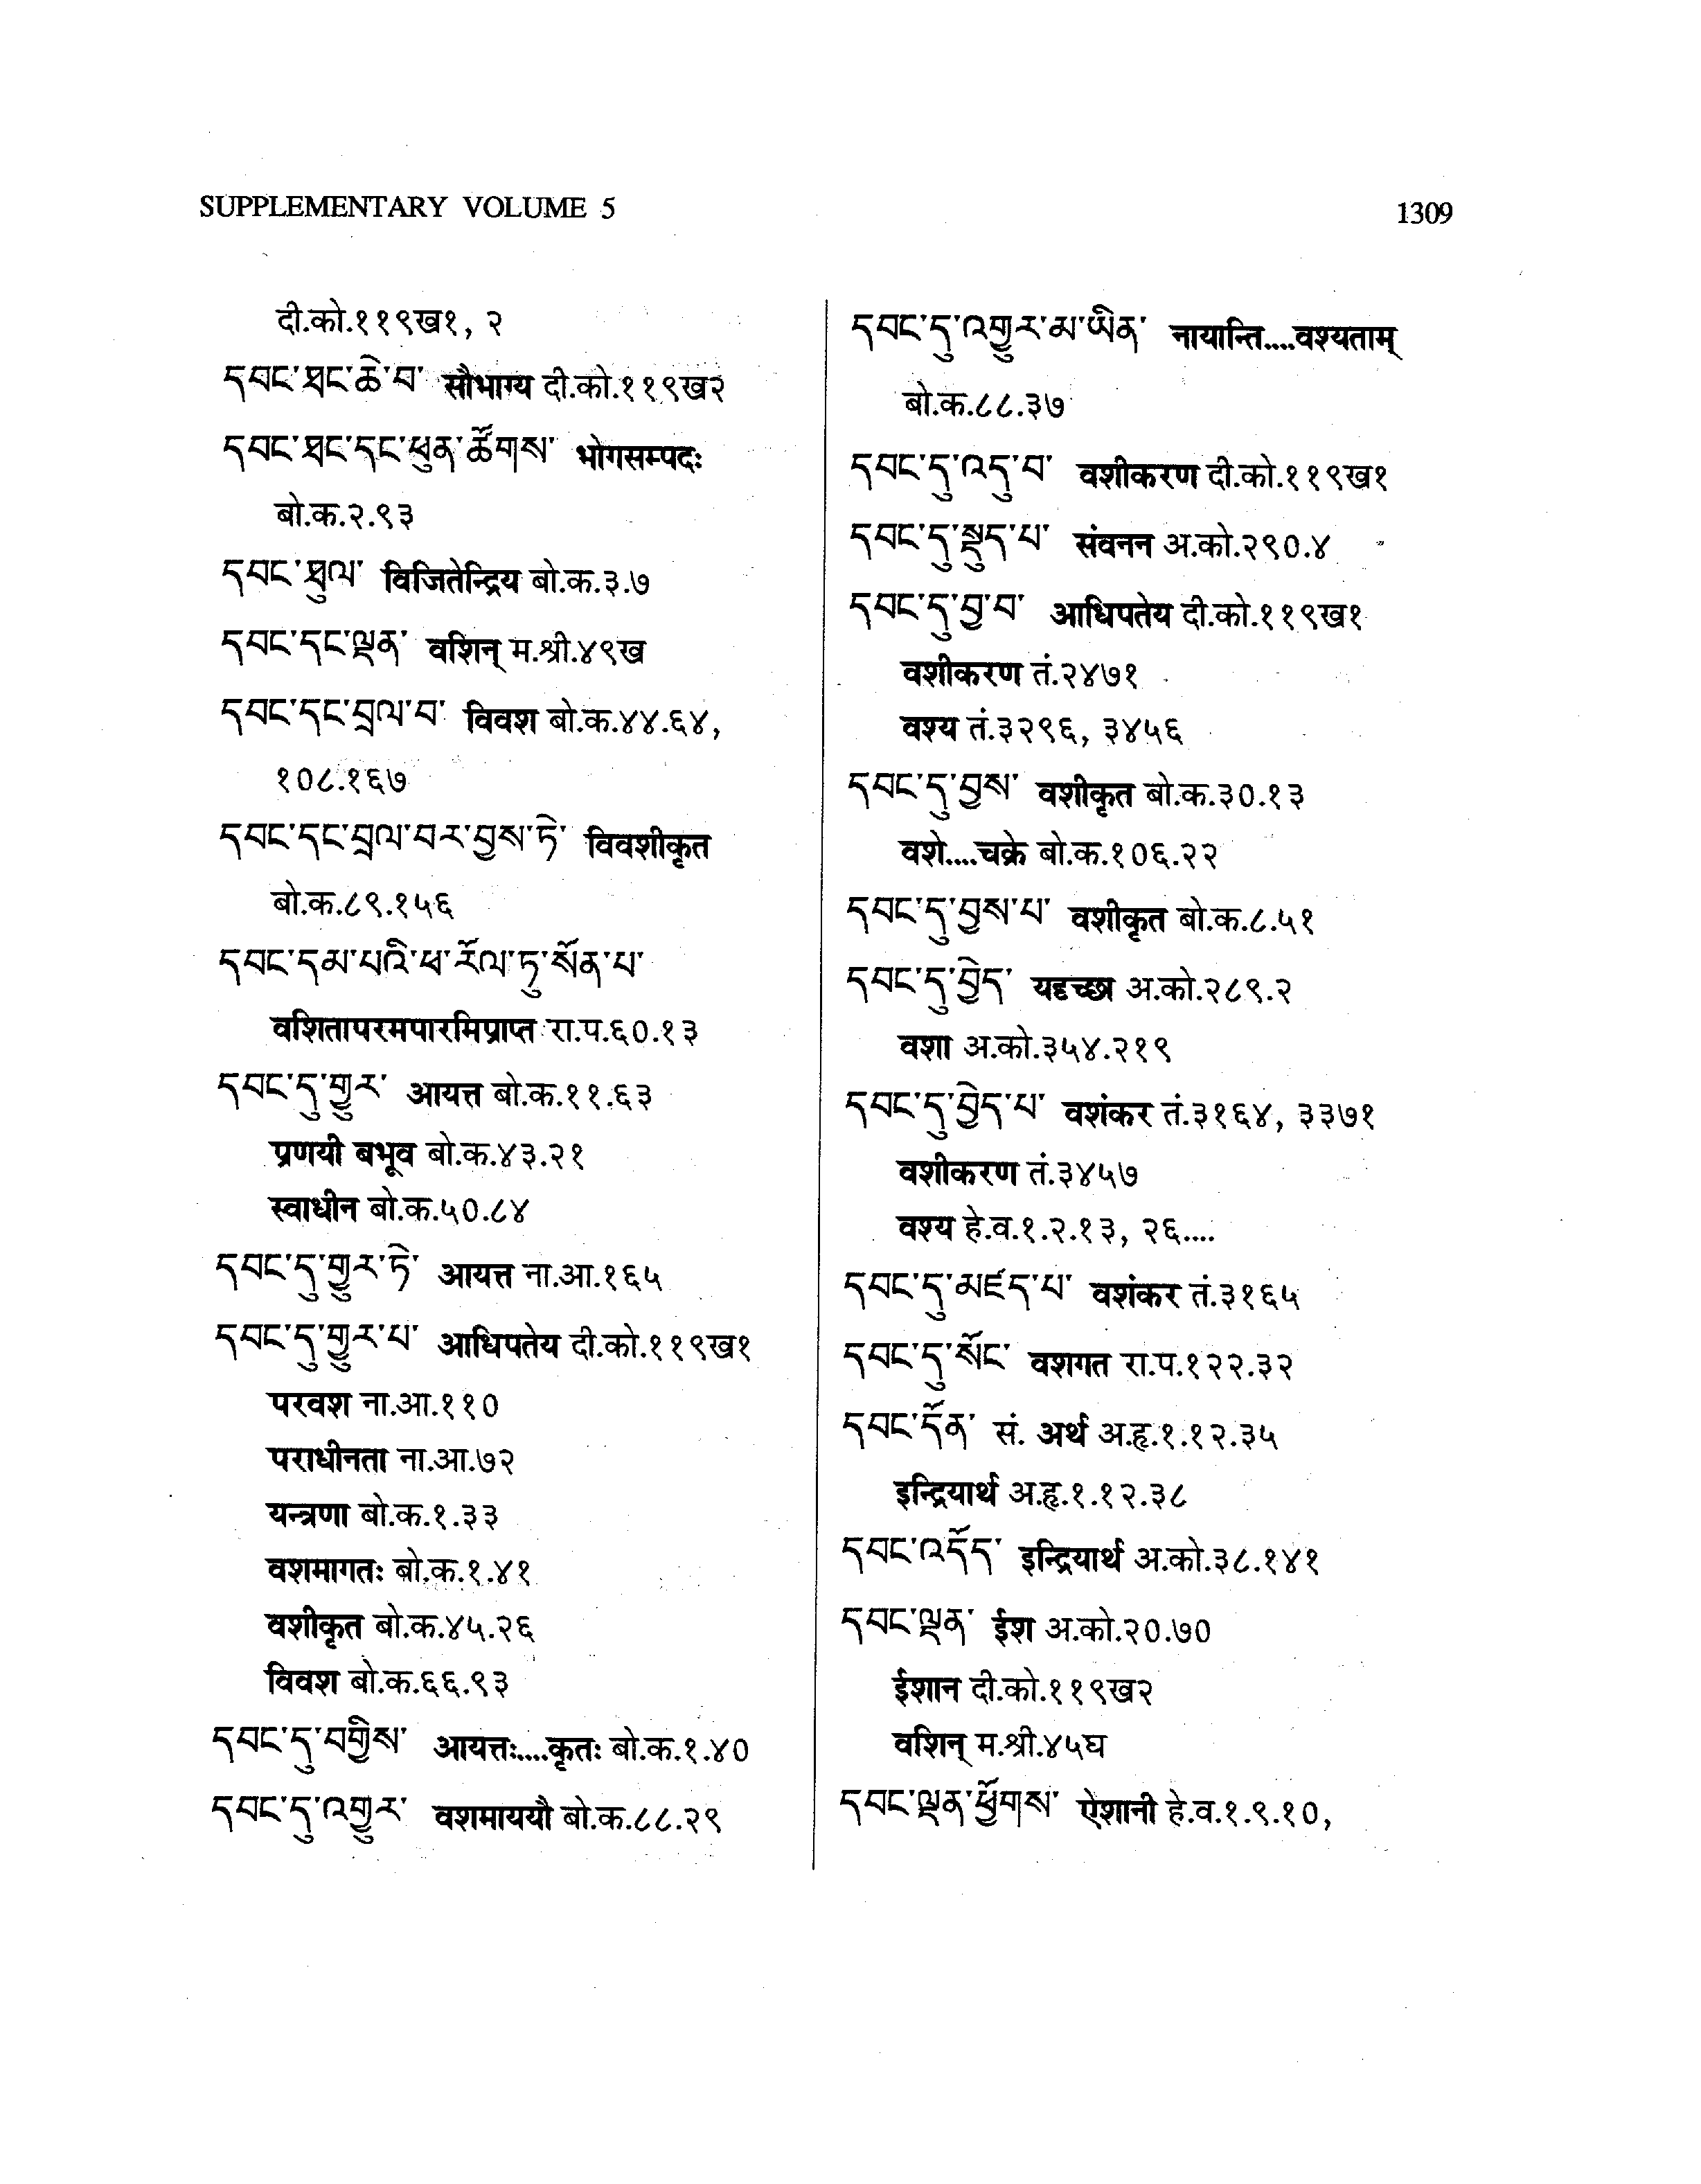 SUPPLEMENTARY VOLUME 5
1309
दी.को.११९ख१, २
དབང་ཐང་ཆེ་བ་ सौभाग्य दी.को.११९ख२
དབང་ཐང་དང་ཕུན་ཚོགས་ भोगसम्पदः
बो.क.२.९३
དབང་ཐུལ་ विजितेन्द्रिय बो.क.३.७
དབང་དང་ལྡན་ वशिन् म.श्री.४९ख
དབང་དང་བྲལ་བ་ विवश बो.क.४४.६४,
१०८.१६७
དབང་དང་བྲལ་བར་བྱས་ཏེ་ विवशीकृत
बो.क.८९.१५६
དབང་དམ་པའི་ཕ་རོལ་ཏུ་སོན་པ་
वशितापरमपारमिप्राप्त रा.प.६०.१३
དབང་དུ་གྱུར་ आयत्त बो.क.११.६३
प्रणयी बभूव बो.क.४३.२१
स्वाधीन बो.क.५०.८४
དབང་དུ་གྱུར་ཏེ་ आयत्त ना.आ.१६५
དབང་དུ་གྱུར་པ་ आधिपतेय दी.को.११९ख१
परवश ना.आ.११०
पराधीनता ना.आ.७२
यन्त्रणा बो.क.१.३३
वशमागतः बो.क.१.४१
वशीकृत बो.क.४५.२६
विवश बो.क.६६.९३
དབང་དུ་བགྱིས་ आयत्तः....कृतः बो.क.१.४०
དབང་དུ་འགྱུར་ वशमाययौ बो.क.८८.२९
དབང་དུ་འགྱུར་མ་ཡིན་ नायान्ति....वश्यताम्
बो.क.८८.३७
དབང་དུ་འདུ་བ་ वशीकरण दी.को.११९ख१
དབང་དུ་སྡུད་པ་ संवनन अ.को.२९०.४
དབང་དུ་བྱ་བ་ आधिपतेय दी.को.११९ख१
वशीकरण तं.२४७१
वश्य तं.३२९६, ३४५६
དབང་དུ་བྱས་ वशीकृत बो.क.३०.१३
वशे....चक्रे बो.क.१०६.२२
དབང་དུ་བྱས་པ་ वशीकृत बो.क.८.५१
དབང་དུ་བྱེད་ यदृच्छा अ.को.२८९.२
वशा अ.को.३५४.२१९
དབང་དུ་བྱེད་པ་ वशंकर तं.३१६४, ३३७१
वशीकरण तं.३४५७
वश्य हे.व.१.२.१३, २६....
དབང་དུ་མཛད་པ་ वशंकर तं.३१६५
དབང་དུ་སོང་ वशगत रा.प.१२२.३२
དབང་དོན་ सं. अर्थ अ.हृ.१.१२.३५
इन्द्रियार्थ अ.हृ.१.१२.३८
དབང་འདོད་ इन्द्रियार्थ अ.को.३८.१४१
དབང་ལྡན་ ईश अ.को.२०.७०
ईशान दी.को.११९ख२
वशिन् म.श्री.४५घ
དབང་ལྡན་ཕྱོགས་ ऐशानी हे.व.१.९.१०,